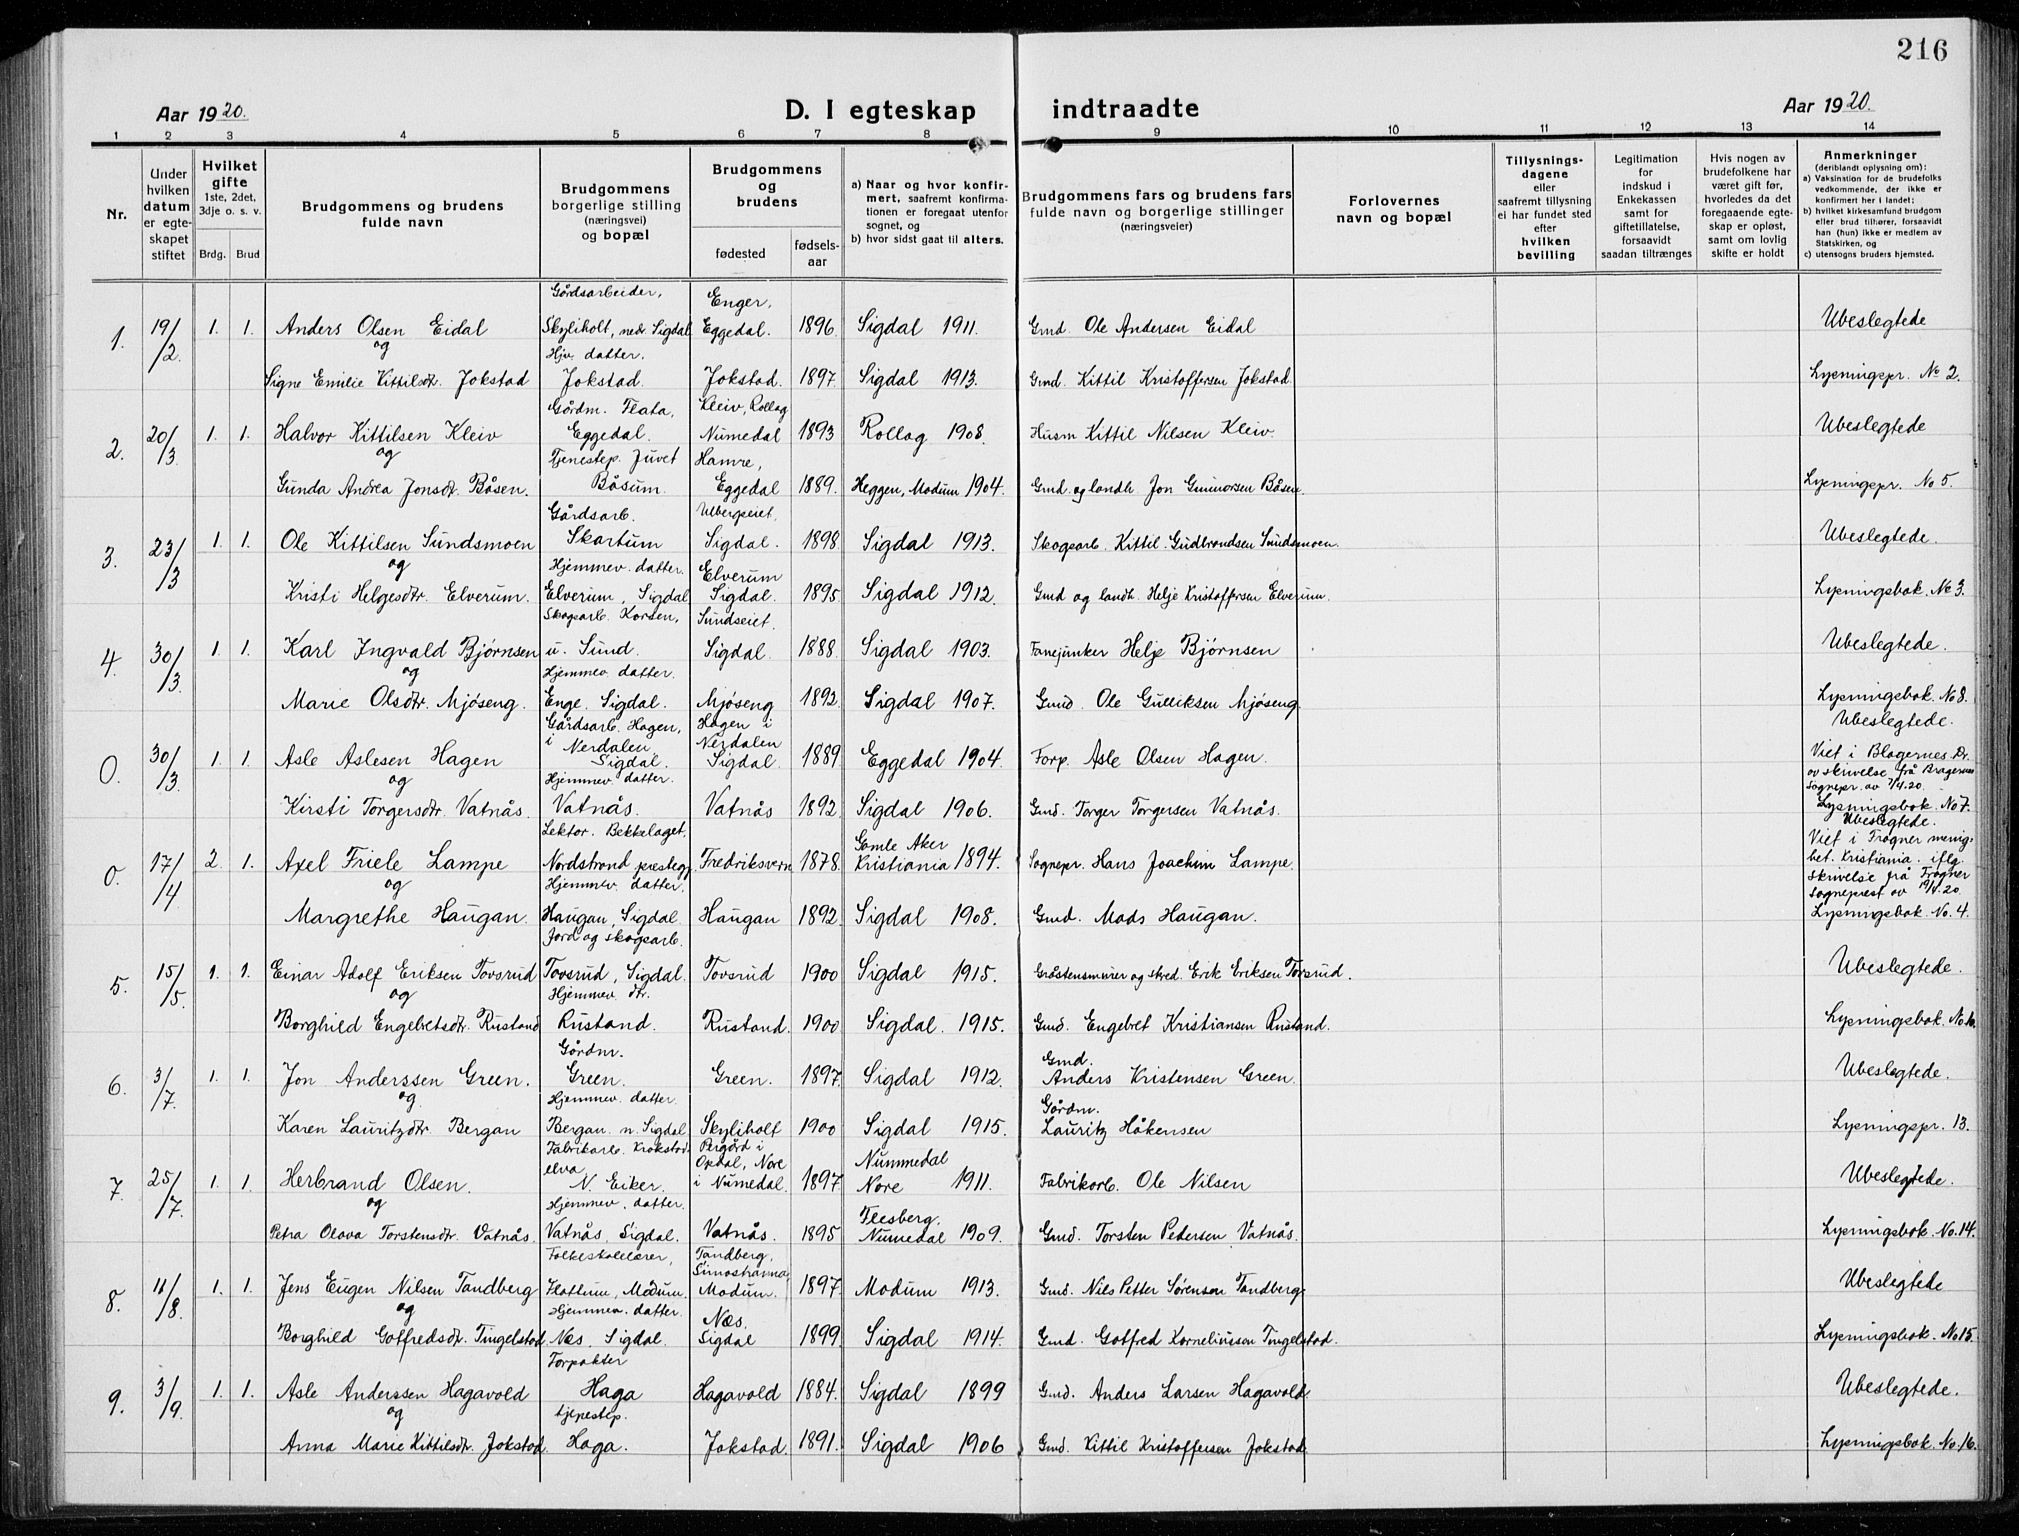 216
Aar 1920.
D. I egteskap indtraadte
Aar 1920.
1 2 3 4 5 6 7 8 9 10 11 12 13 14
Nr.
Under hvilken datum er egteskapet stiftet
Hvilket gifte
1ste, 2det, 3dje o. s. v.
Brdg. Brud
Brudgommens og brudens fulde navn
Brudgommens borgerlige stilling (næringsvei) og bopæl
Brudgommens og brudens
fødested
fødselsaar
a) Naar og hvor konfirmert, saafremt konfirmationen er foregaat utenfor sognet, og
b) hvor sidst gaat til alters.
Brudgommens fars og brudens fars fulde navn og borgerlige stillinger (næringsveier)
Forlovernes navn og bopæl
Tillysningsdagene eller saafremt tillysning ei har fundet sted efter hvilken bevilling
Legitimation for indskud i Enkekassen samt for giftetillatelse, forsaavidt saadan tiltrænges
Hvis nogen av brudefolkene har været gift før, hvorledes da det foregaaende egteskap er opløst, samt om lovlig skifte er holdt
Anmerkninger
(deriblandt oplysning om):
a) Vaksination for de brudefolks vedkommende, der ikke er konfirmert her i landet;
b) hvilket kirkesamfund brudgom eller brud tilhører, forsaavidt han (hun) ikke er medlem av Statskirken, og
c) utensogns bruders hjemsted.
1. 19/2. 1. 1. Anders Olsen Eidal Gårdsarbeider, Skyliholt, nedr. Sigdal Enger, Eggedal. 1896. Sigdal 1911. Gmd. Ole Andersen Eidal Ubeslegtede
og
Signe Emilie Kittilsdtr. Jokstad Hjv. datter, Jokstad. Jokstad. 1897. Sigdal 1913. Gmd. Kittil Kristoffersen Jokstad. Lysningspr. No 2.
2. 20/3. 1. 1. Halvor Kittilsen Kleiv Gårdm. Flata, Eggedal. Kleiv, Rollag Numedal 1893 Rollag 1908. Husm Kittil Nilsen Kleiv. Ubeslegtede
og
Gunda Andrea Jonsdtr. Båsen. Tjenestep. Juvet Båsum. Hamre, Eggedal 1889. Heggen, Modum 1904. Gmd. og landh. Jon Gunnorsen Båsen. Lysningspr. No 5.
3. 23/3 1. 1. Ole Kittilsen Sundsmoen Gårdsarb. Skartum Ulbergseiet, Sigdal. 1898. Sigdal 1913. Skogsarb. Kittil Gudbrandsen Sundsmoen. Ubeslegtede.
og
Kristi Helgesdtr. Elverum. Hjemmev. datter. Elverum, Sigdal Elverum Sigdal. 1895. Sigdal 1912. Gmd og landh. Helje Kristoffersen Elverum. Lysningsbok. No 3.
4. 30/3. 1. 1. Karl Ingvald Bjørnsen Skogsarb. Korsen, u. Sund. Sundseiet. Sigdal. 1888. Sigdal 1903. Fanejunker Helje Bjørnsen Ubeslegtede.
og
Marie Olsdtr. Mjøseng. Hjemmev. datter. Enge. Sigdal. Mjøseng 1892. Sigdal 1907. Gmd. Ole Gulliksen Mjøseng. Lysningsbok. No 8.
0. 30/3. 1. 1. Asle Aslesen Hagen Gårdsarb. Hagen, i Nerdalen Sigdal. Hagen i Nerdalen Sigdal. 1889. Eggedal 1904. Forp. Asle Olsen Hagen. Ubeslegtede. Viet i Bragernes Dr. ov skrivelse frå Bragernes Sognepr. av 1/4.20.
og
Kirsti Torgersdtr. Vatnås. Hjemmev. datter. Vatnås. Vatnås 1892. Sigdal 1906. Gmd. Torger Torgersen Vatnås. Lysningsbok. No 7.
0. 17/4 2. 1. Axel Friele Lampe Lektor. Bekkelaget, Nordstrand prestegj. Fredriksvern 1878. Gamle Aker Kristiania 1894. Sognepr. Hans Joachim Lampe. Ubeslegtede. Viet i Frogner menighet. Kristiania. iflg. skrivelse frå Frogner Sogneprest av 19/4.20.
og
Margrethe Haugan. Hjemmev. datter. Haugan, Sigdal. Haugan 1892. Sigdal 1908. Gmd. Mads Haugan. Lysningsbok. No. 4.
5. 15/5. 1. 1. Einar Adolf Eriksen Tovsrud Jord og skogsarb. Tovsrud, Sigdal. Tovsrud 1900 Sigdal 1915. Gråstensmurer og skred. Erik Eriksen Tovsrud. Ubeslegtede.
og
Borghild Engebretsdtr. Rustand Hjemmev. dtr. Rustand. Rustand. 1900 Sigdal. 1915. Gmd. Engebret Kristiansen Rustand. Lysningsbok. No 10.
6. 3/7. 1. 1. Jon Anderssen Green. Gårdm. Green. Green. 1897. Sigdal 1912. Gmd. Anders Kristensen Green. Ubeslegtede.
og
Karen Lauritzdtr. Bergan Hjemmev. datter. Bergan. n. Sigdal Skyliholt 1900 Sigdal 1915. Gårdm. Lauritz Håkensen Lysningspr. 13.
7. 25/7. 1. 1. Herbrand Olsen. Fabrikarb. Krokstadelva N. Eiker. Bergård i Opdal, Nore i Numedal. 1897. Nummedal Nore 1911. Fabrikarb. Ole Nilsen Ubeslegtede.
og
Petra Olava Torstensdtr. Vatnås. Hjemmev. datter. Vatnås, Sigdal. Vatnås. 1895 Flesberg. Numedal 1909. Gmd. Torsten Petersen Vatnås. Lysningsbok. No. 14.
8. 11/8. 1. 1. Jens Eugen Nilsen Tandberg Folkeskolelærer, Flattum, Modum. Tandberg, Simostranna, Modum. 1897. Modum 1913. Gmd. Nils Petter Sørensen Tandberg. Ubeslegtede
og
Borghild Gotfredsdtr. Tingelstad Hjemmev. datter. Næs. Sigdal. Næs. Sigdal 1899. Sigdal 1914. Gmd. Gotfred Korneliussen Tingelstad. Lysningsbok. No 15.
9. 3/9. 1. 1. Asle Anderssen Hagavold Forpakter Haga Hagavold 1884. Sigdal 1899 Gmd. Anders Larsen Hagavold Ubeslegtede.
og
Anna Marie Kittilsdtr. Jokstad. tjenestep. Haga. Jokstad. 1891. Sigdal 1906 Gmd. Kittil Kristoffersen Jokstad Lysningsbok. No. 16.